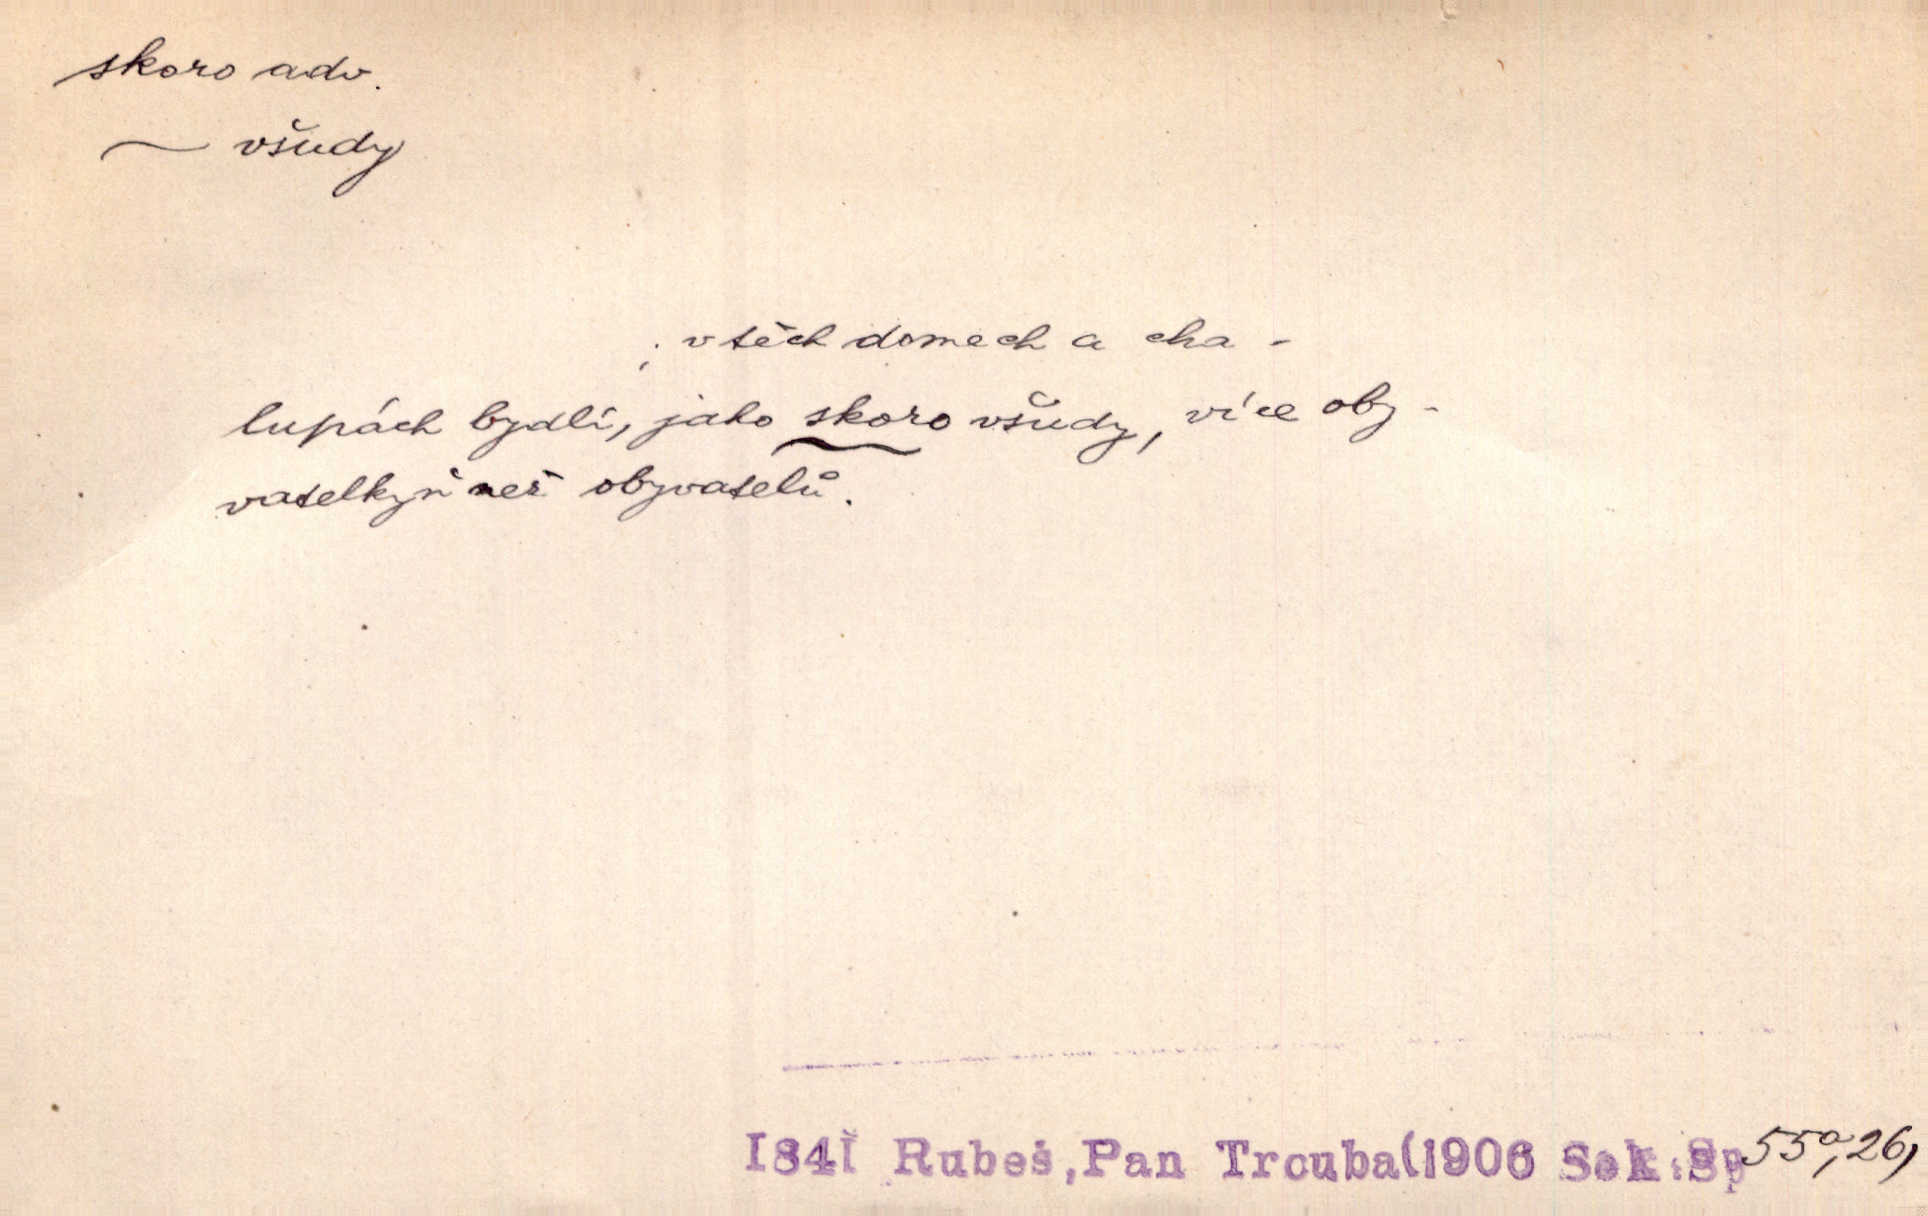 skoro adv.
~ všudy
; v těch domech a cha-
lupách bydlí, jako skoro všudy, více oby-
vatelkyň než obyvatelů.
1841 Rubeš, Pan Trouba (1906 Sek. Sp 55a, 26)